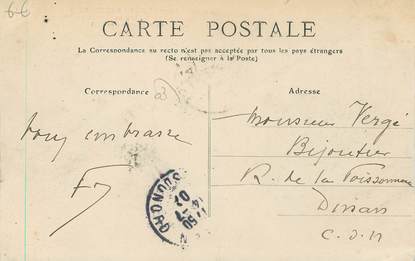 66
CARTE POSTALE
La Correspondance au recto n'est pas acceptée par tous les pays étrangers
(Se renseigner à la Poste)
Correspondance
Adresse
vous embrasse
Monsieur Vergé
Bijoutier
R. de la Poissonnerie
Dinan
C.D.N